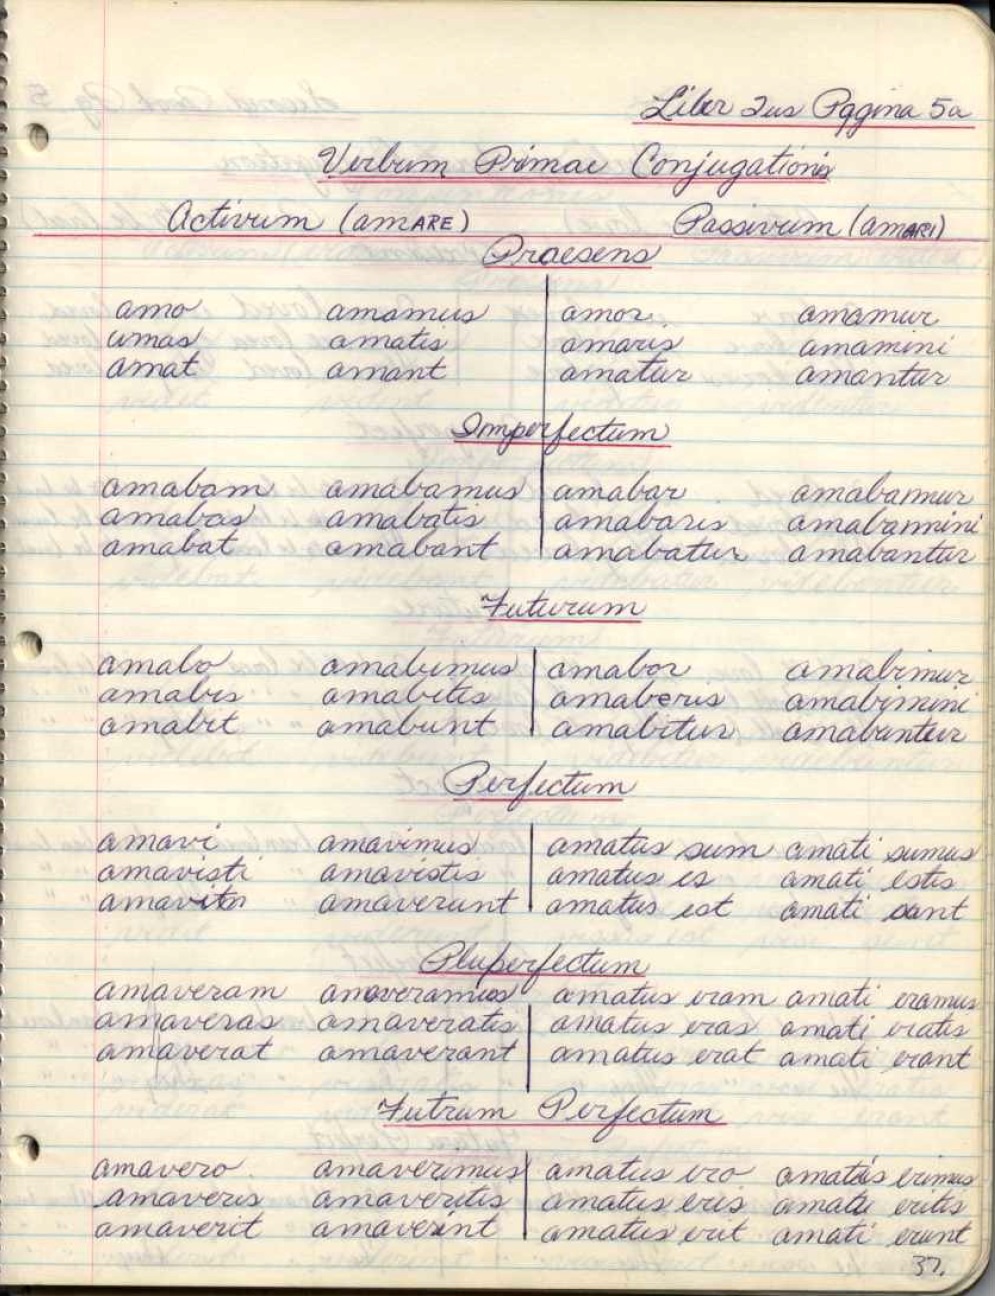 Liber 2us Pagina 5a
Verbum Primae Conjugationis
Activum (amARE) Passivum (amARI)
Praesens
amo amamus amor amamur
amas amatis amaris amamini
amat amant amatur amantur
Imperfectum
amabam amabamus amabar amabamur
amabas amabatis amabaris amabamini
amabat amabant amabatur amabantur
Futurum
amabo amabimus amabor amabimur
amabis amabitis amaberis amabimini
amabit amabunt amabitur amabuntur
Perfectum
amavi amavimus amatus sum amati sumus
amavisti amavistis amatus es amati estis
amavit amaverunt amatus est amati sunt
Pluperfectum
amaveram amaveramus amatus eram amati eramus
amaveras amaveratis amatus eras amati eratis
amaverat amaverant amatus erat amati erant
Futrum Perfectum
amavero amaverimus amatus ero erimus
amaveris amaveritis amatus eris amati eritis
amaverit amaverint amatus erit amati erunt
37.